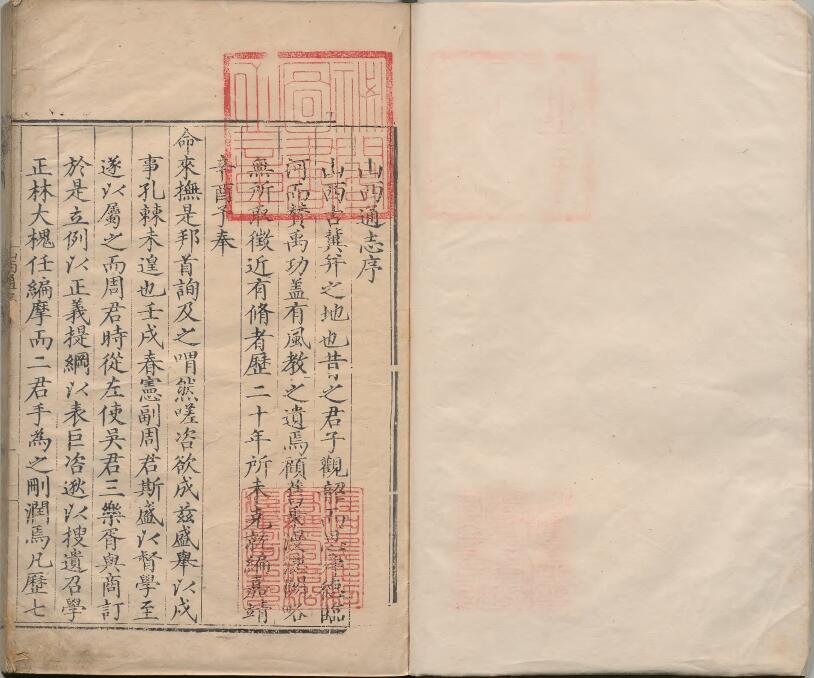 山西通志序
山西古冀并之地也昔之君子觀韶而思帝德臨
河而贊禹功盖有風教之遺焉顧舊乘漫漶闕畧
無所取徵近有脩者歷二十年所未克就編嘉靖
辛酉予奉
命來撫是邦首詢及之喟然嗟咨欲成茲盛舉以戍
事孔棘未遑也壬戌春憲副周君斯盛以督學至
遂以屬之而周君時從左使吳君三樂胥與商訂
於是立例以正義提綱以表巨咨逖以搜遺召學
正林大槐任編摩而二君手為之刪潤焉凡歷七